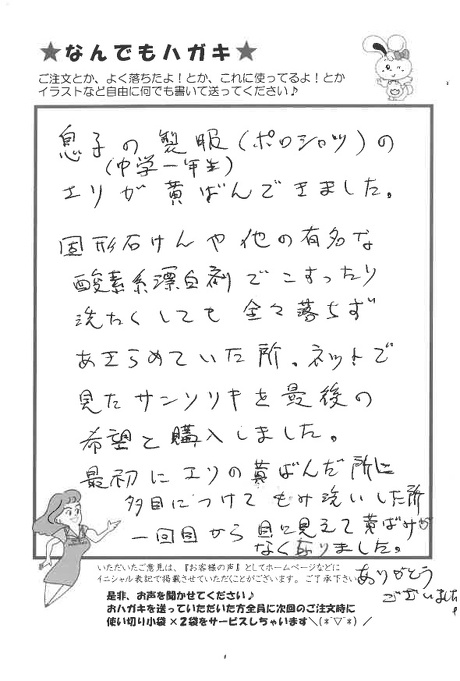 ★なんでもハガキ★
ご注文とか、よく落ちたよ！とか、これに使ってるよ！とか
イラストなど自由に何でも書いて送ってください♪
息子の製服(ポロシャツ)の
(中学一年生)
エリが黄ばんできました。
固形石けんや他の有名な
酸素系漂白剤でこすったり
洗たくしても全々落ちず
あきらめていた所、ネットで
見たサンソリキを最後の
希望と購入しました。
最初にエリの黄ばんだ所に
多目につけてもみ洗いした所
一回目から目に見えて黄ばみが
なくなりました。
ありがとう
ございました
いただいたご意見は、『お客様の声』としてホームページなどに
イニシャル表記で掲載させていただくことがございます。ご了承下さい
是非、お声を聞かせてください♪
おハガキを送っていただいた方全員に次回のご注文時に
使い切り小袋×2袋をサービスしちゃいます＼(*´▽`*)／